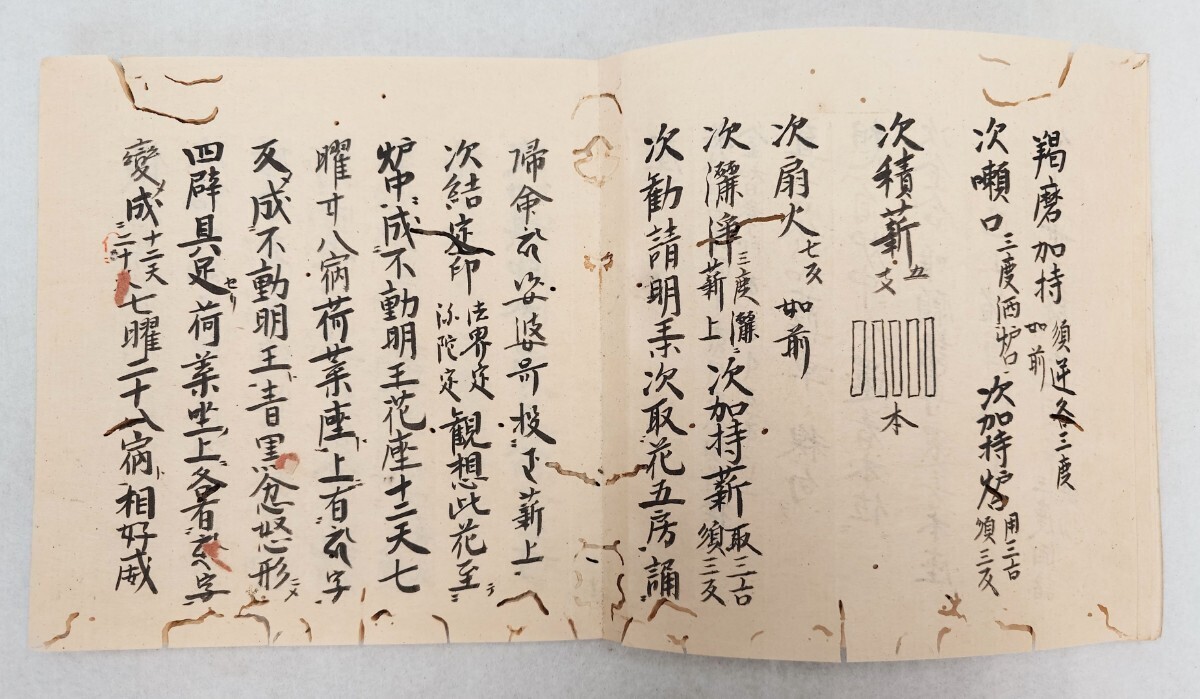 羯磨加持 須逆各三度 如前
次嗽口 三度洒炉口 次加持炉 用三古 須三反
次積薪 五支
本
次扇火 七反 如前
次灑浄 三度灑 薪上 次加持薪 取三古 須三反
次勧請明王次取花五房誦
帰命 娑婆 投 薪上
次結定印 法界定 弥陀定 観想此花至
炉中成不動明王花座十二天七
曜廿八宿荷葉座上有 字
反成不動明王青黒忿怒形
四臂具足荷葉坐上各有 字
変成十二天七曜二十八宿相好威